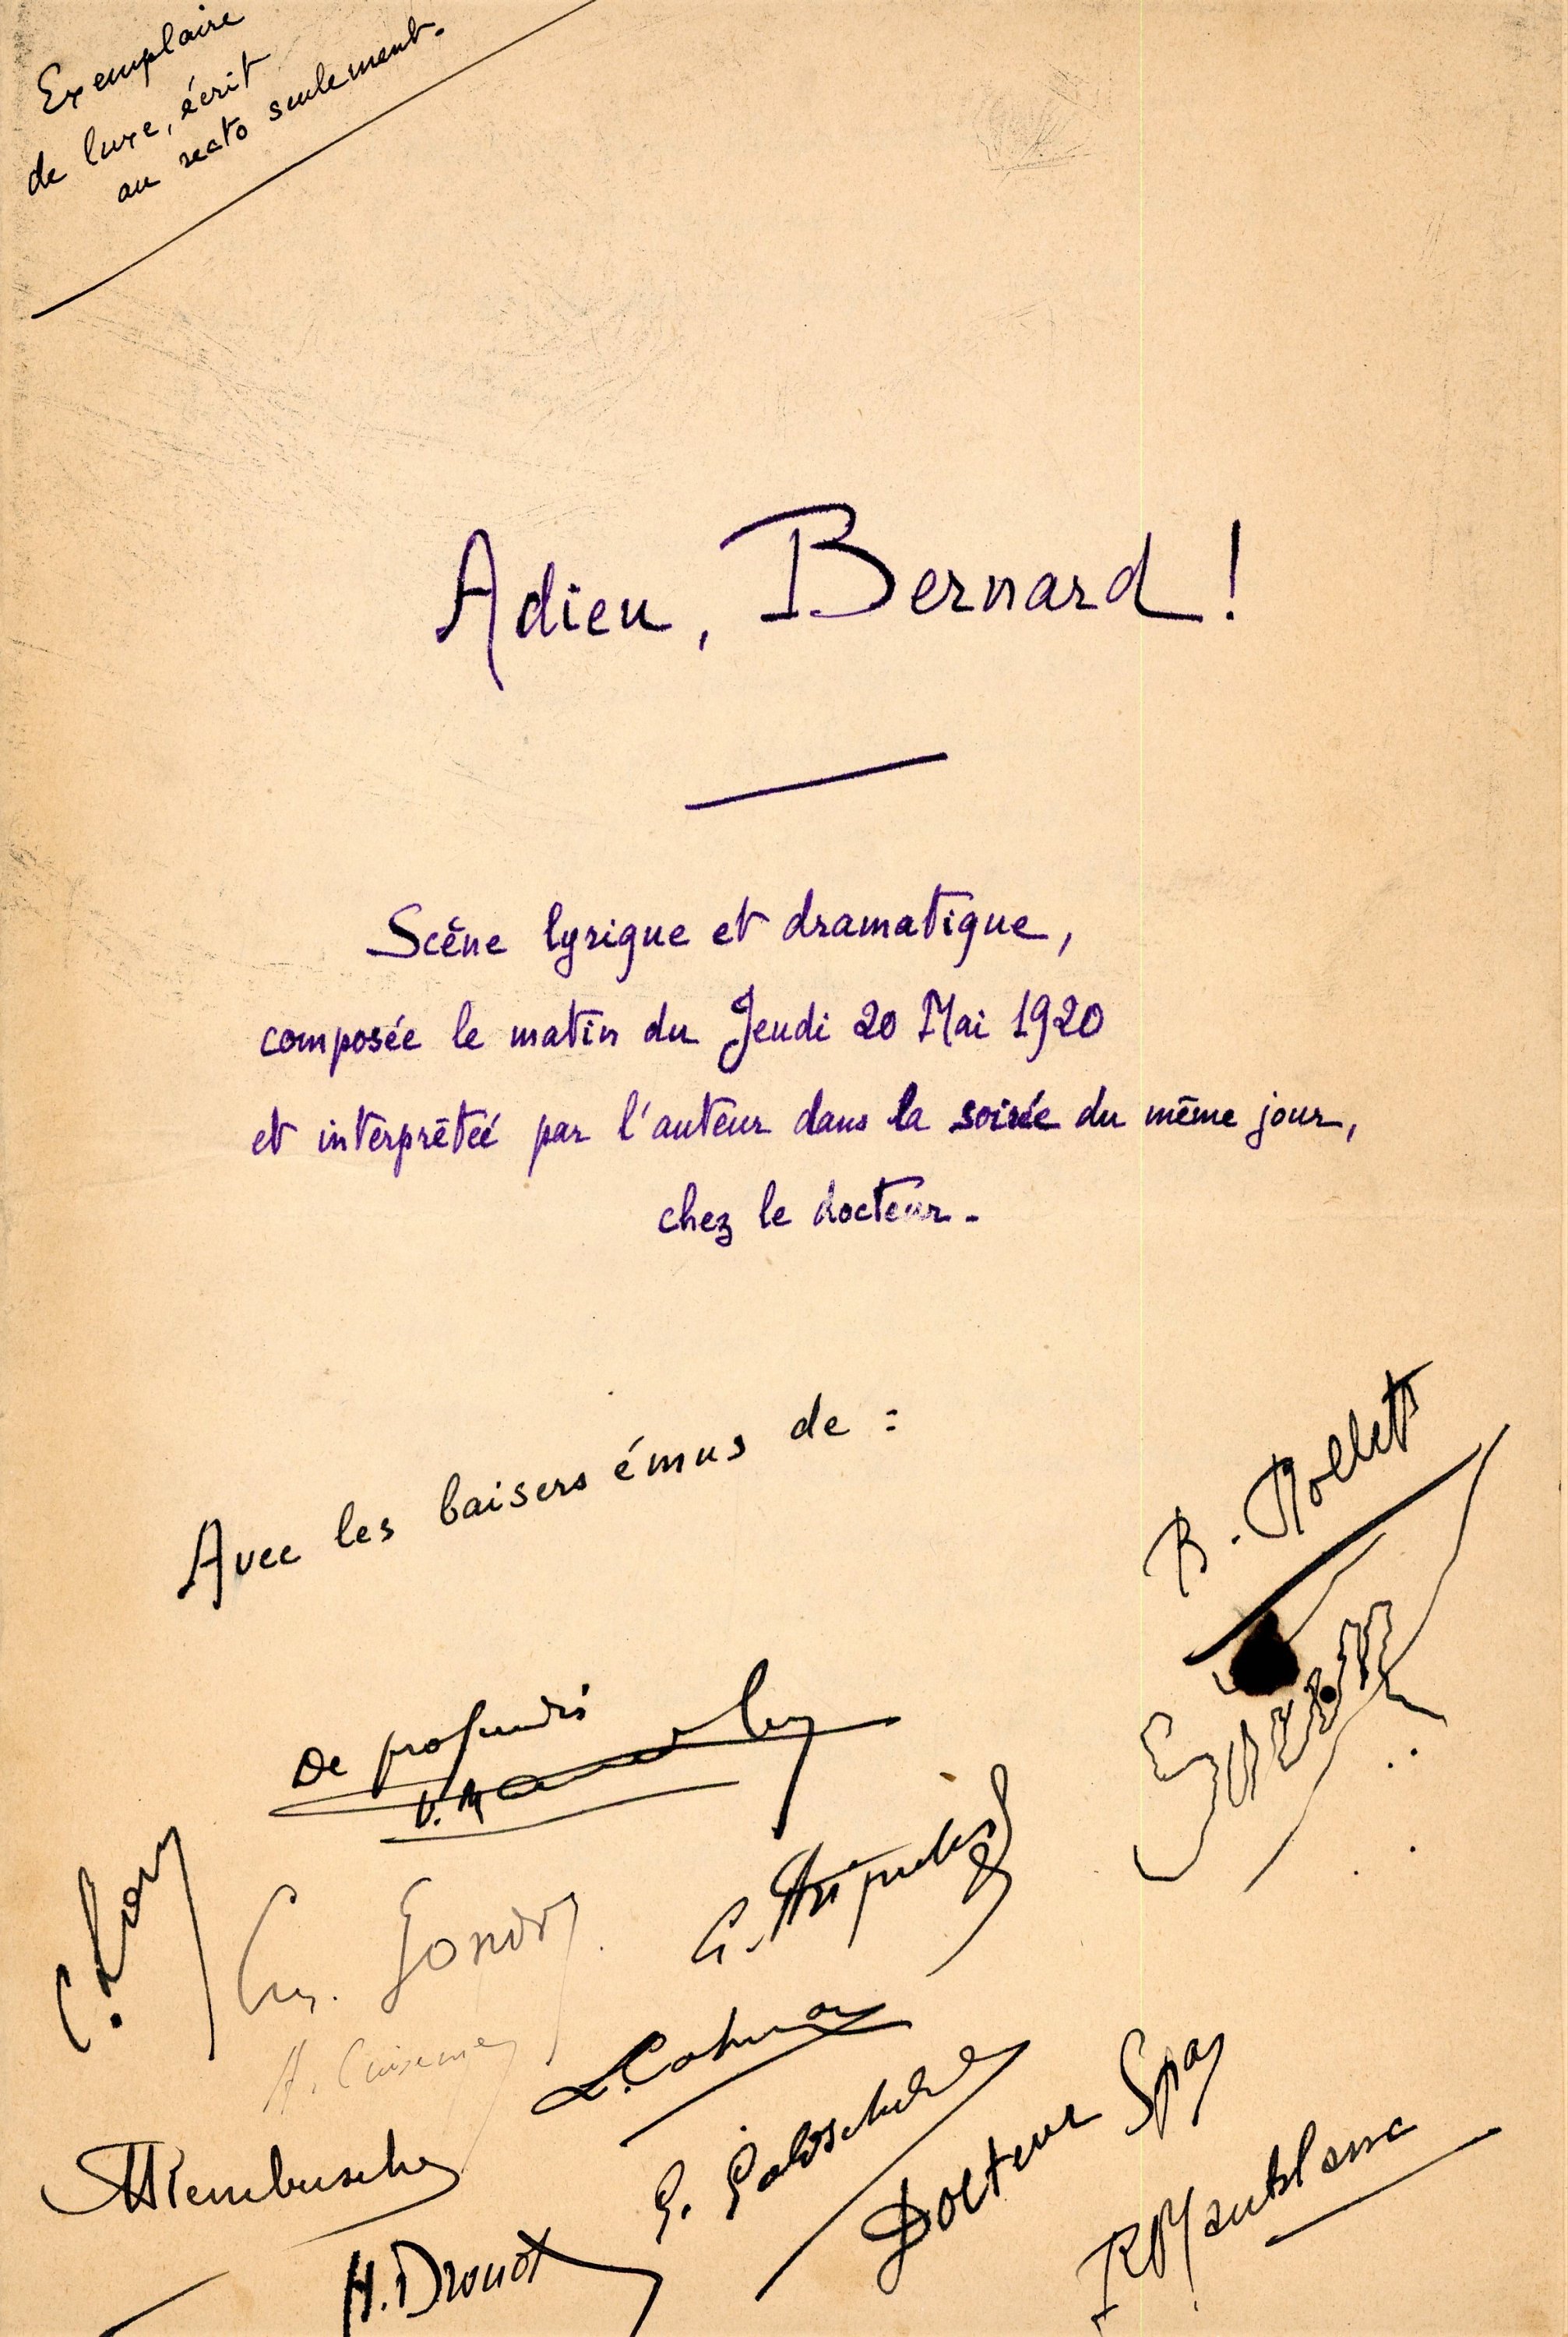 Exemplaire
de luxe, écrit
au recto seulement.
Adieu, Bernard !
Scène lyrique et dramatique,
composée le matin du Jeudi 20 Mai 1920
et interprétée par l'auteur dans la soirée du même jour,
chez le docteur.
Avec les baisers émus de :
R. Mollet
De profundis
C. Lory
Ch. Gondry
L. Cahen
G. Goldschild
Docteur Spay
H. Drouot
R Maublanc